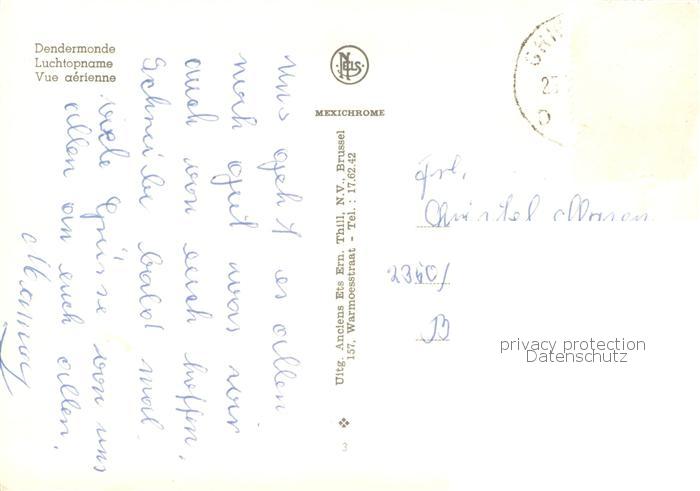 Dendermonde
Luchtopname
Vue aérienne
NELS
MEXICHROME
Uitg. Anciens Ets Ern. Thill, N.V., Brussel
157, Warmoesstraat - Tel. : 17.62.42
3
Uns geht es allen
noch gut was wir
auch von euch hoffen,
Schreibe bald mal.
viele Grüsse von uns
allen an euch allen.
Frl.
Christel
23
privacy protection
Datenschutz